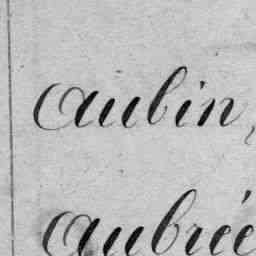 Aubin,
Aubrée